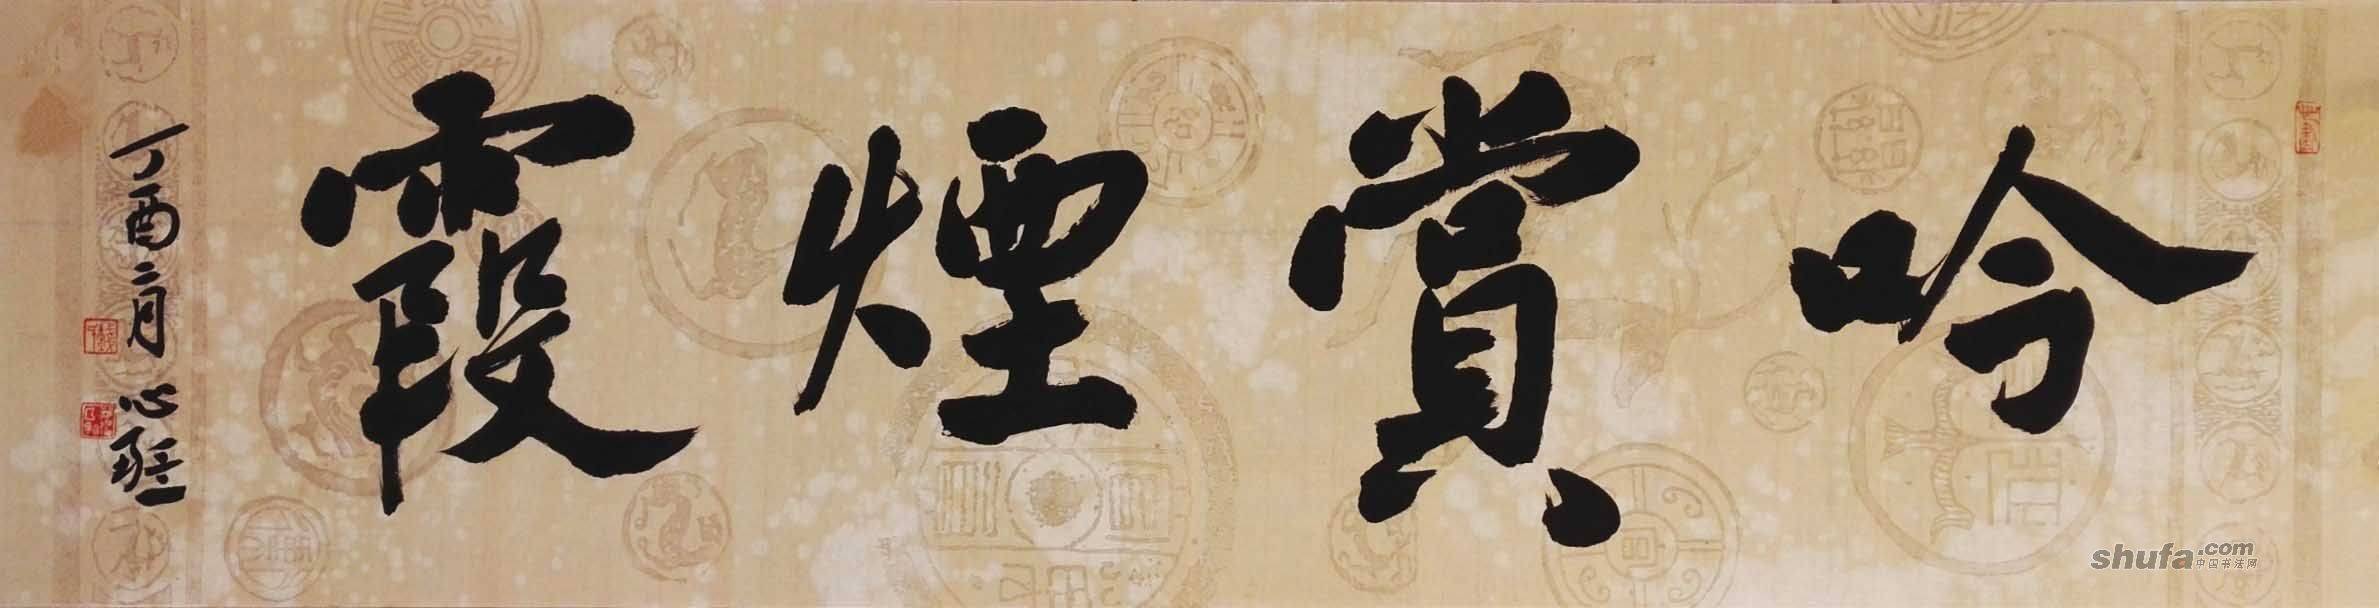 吟賞煙霞
丁酉二月 心
shufa.com
中国书法网